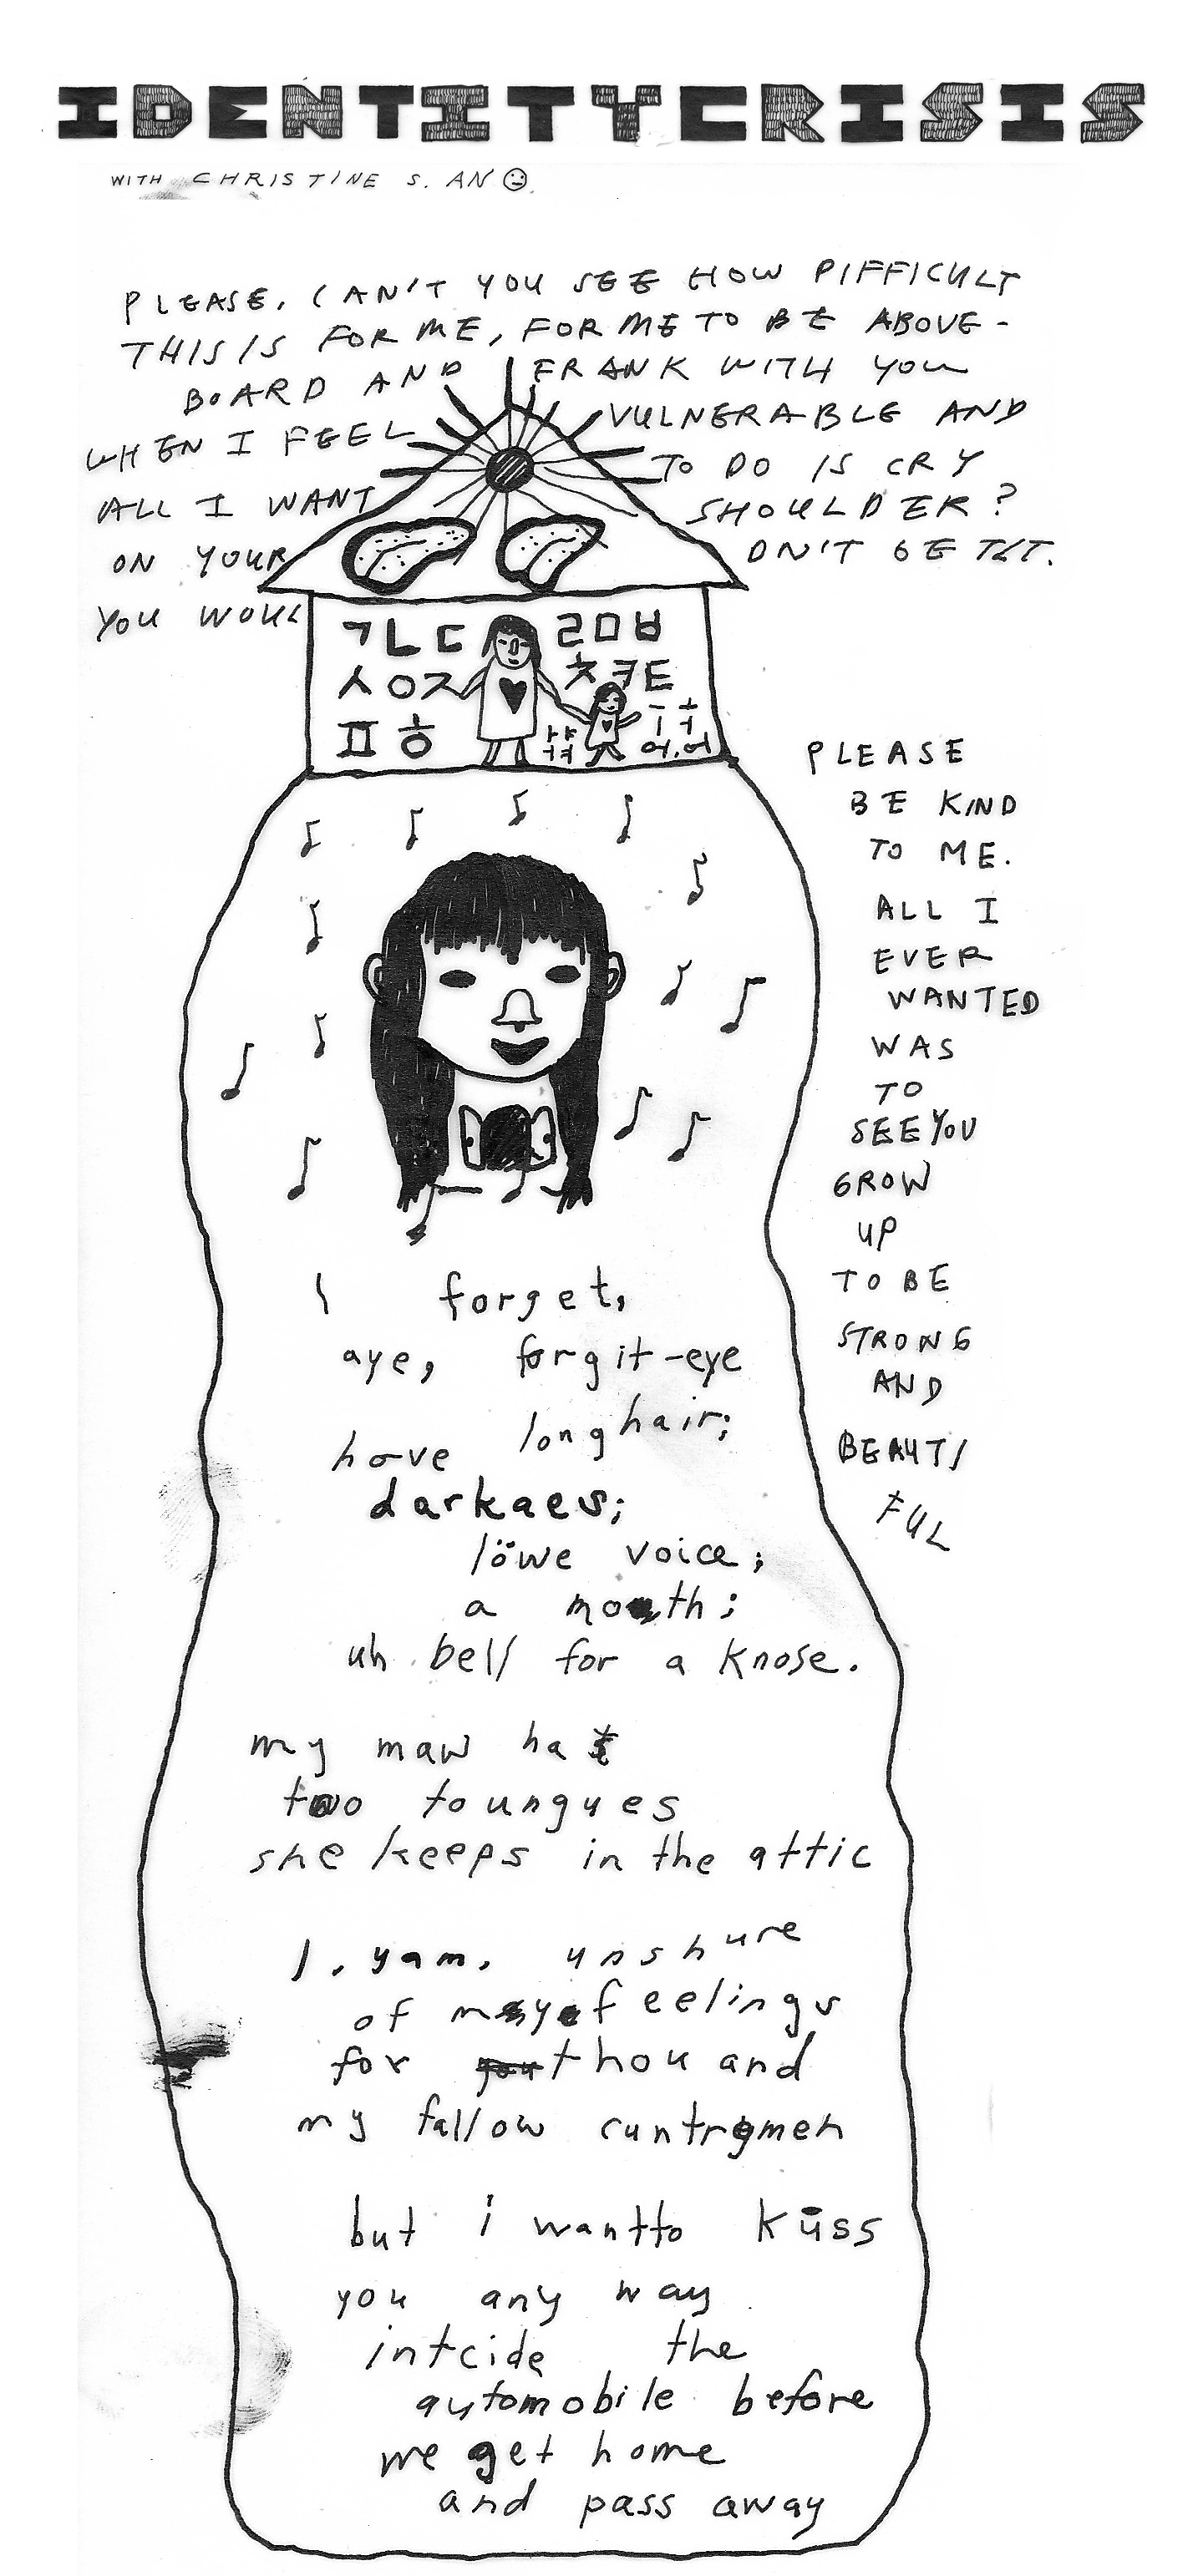 IDENTITYCRISIS
WITH CHRISTINE S. AN
PLEASE, CAN'T YOU SEE HOW DIFFICULT
THIS IS FOR ME, FOR ME TO BE ABOVE-
BOARD AND FRANK WITH YOU
WHEN I FEEL VULNERABLE AND
ALL I WANT TO DO IS CRY
ON YOUR SHOULDER?
YOU WOUL DN'T GET IT.
ㄱㄴㄷ ㄹㅁㅂ
ㅅㅇㅈ ㅊㅋㅌ
ㅍㅎ
PLEASE
BE KIND
TO ME.
ALL I
EVER
WANTED
WAS
TO
SEE YOU
GROW
UP
TO BE
STRONG
AND
BEAUTI
FUL
I forget,
aye, forgit-eye
have long hair;
darkaes;
löwe voice;
a mouth;
uh bell for a knose.
my maw hat
two toungues
she keeps in the attic
I. yam. unshure
of my feelings
for thou and
my fallow cuntrymen
but i wantto küss
you any way
intcide the
automobile before
we get home
and pass away